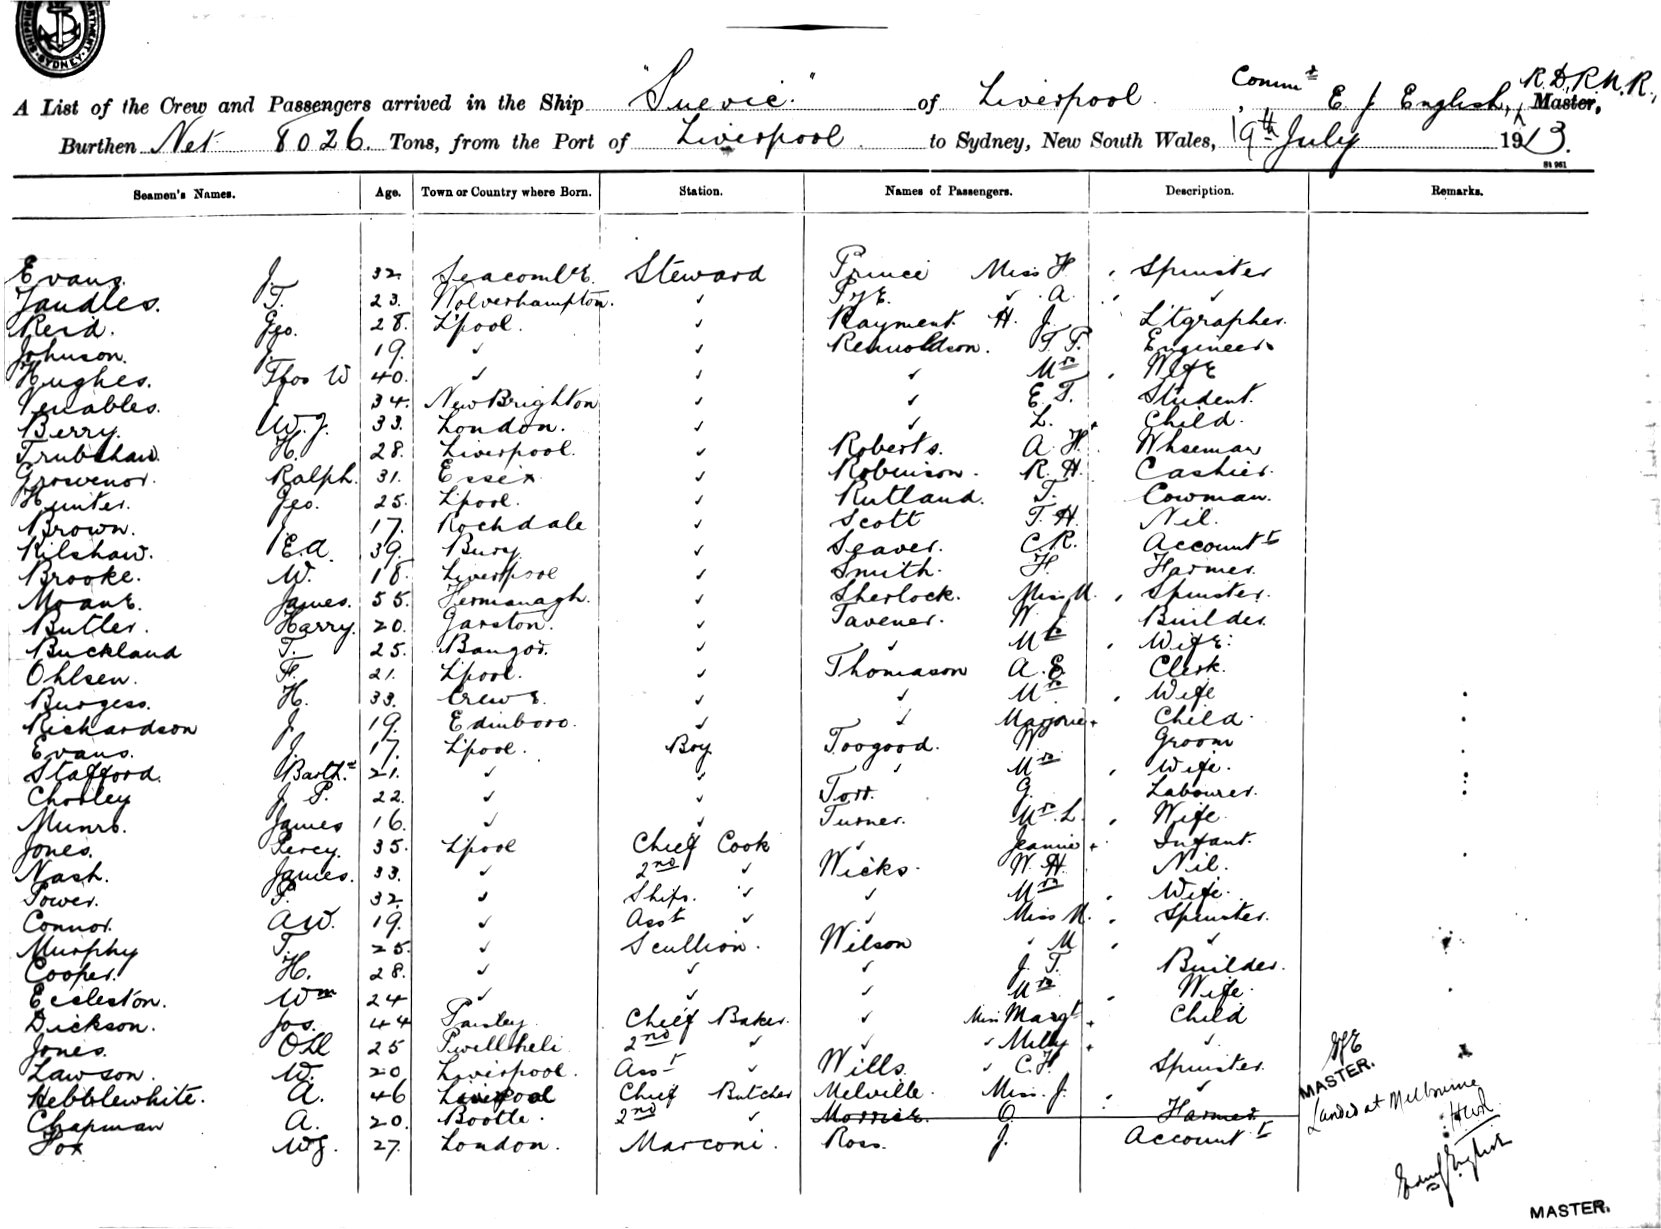 SHIPPING DEPARTMENT SYDNEY
A List of the Crew and Passengers arrived in the Ship "Suevic" of Liverpool, Commr E J English, R.D. R.N.R., Master,
Burthen Net 8026. Tons, from the Port of Liverpool to Sydney, New South Wales, 19th July 1913.
St 961
Seamen's Names. Age. Town or Country where Born. Station. Names of Passengers. Description. Remarks.
Evans. J 32 Seacombe. Steward Prince Miss F. Spinster
Tandles. T. 23. Wolverhampton. ✓ Pye. ✓ A. ✓
Reid. Geo. 28. L'pool. ✓ Rayment. H. J. Litgrapher.
Johnson. J. 19. ✓ ✓ Rennoldson. T. P. Engineer.
Hughes. Thos W 40. ✓ ✓ ✓ Mrs Wife
Venables. J 34. New Brighton ✓ ✓ E. T. Student.
Berry. W. J. 33. London. ✓ ✓ L. Child.
Trubshaw. H. 28. Liverpool. ✓ Roberts. A. H. Whseman
Grosvenor. Ralph. 31. Essex ✓ Robinson. R. H. Cashier.
Hunter. Geo. 25. L'pool. ✓ Rutland. T. Cowman.
Brown. J 17. Rochdale ✓ Scott T. H. Nil.
Kilshaw. E. A. 39. Bury. ✓ Seaver. C. R. Accountt
Brooke. W. 18. Liverpool ✓ Smith. F. Farmer.
Moane. James. 55. Fermanagh. ✓ Sherlock. Miss M. Spinster.
Butler. Harry. 20. Garston. ✓ Tavener. W. J Builder.
Buckland T. 25. Bangor. ✓ ✓ Mrs Wife.
Ohlsen. F. 21. L'pool. ✓ Thomason A. E. Clerk.
Burgess. H. 33. Crewe. ✓ ✓ Mrs Wife
Richardson J. 19. Edinboro. ✓ ✓ Marjorie Child.
Evans. J. 17. L'pool. Boy Toogood. W Groom
Stafford. Barthw 21. ✓ ✓ ✓ Mrs Wife.
Chorley J. P. 22. ✓ ✓ Torr. G. Labourer.
Munro. James 16. ✓ ✓ Turner. Mrs L. Wife.
Jones. Percy. 35. L'pool Chief Cook ✓ Jeannie Infant.
Nash. James. 33. ✓ 2nd ✓ Wicks. W. H. Nil.
Tower. P. 32. ✓ Ships. ✓ ✓ Mrs Wife.
Connor. A W. 19. ✓ Asst ✓ ✓ Miss M. Spinster.
Murphy T. 25. ✓ Scullion. Wilson ✓ M ✓
Cooper. H. 28. ✓ ✓ ✓ J. T. Builder.
Eccleston. Wm 24 ✓ ✓ ✓ Mrs Wife.
Dickson. Jos. 44 Paisley. Chief Baker. ✓ Miss Margt Child
Jones. O Ll 25 Pwllheli. 2nd ✓ ✓ ✓ Milly ✓
Lawson. W. 20 Liverpool. Asst ✓ Wills. ✓ C. H. Spinster.
Hebblewhite. A. 46 Liverpool Chief Butcher Melville. Miss. J. ✓
Chapman A. 20. Bootle. 2nd ✓ Morrice. O. Farmer. Landed at Melbourne
Fox W J. 27. London. Marconi. Ross. J. Accountt
EJE
MASTER.
Edwd J English
MASTER.